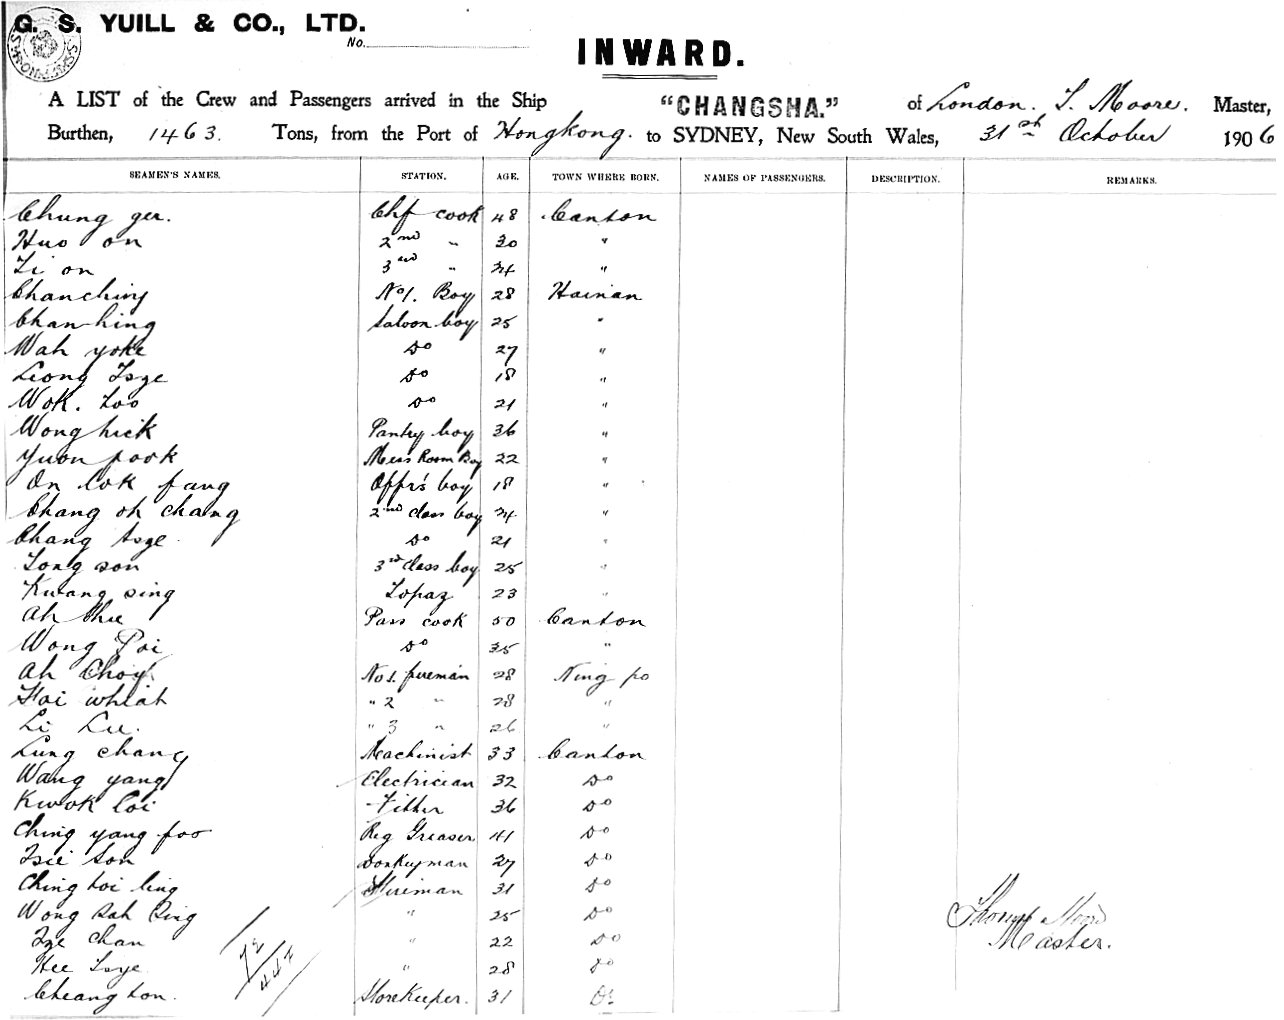 G. S. YUILL & CO., LTD.
No.
INWARD.
A LIST of the Crew and Passengers arrived in the Ship "CHANGSHA." of London. T. Moore. Master,
Burthen, 1463. Tons, from the Port of Hongkong. to SYDNEY, New South Wales, 31st October 1906
SEAMEN'S NAMES. STATION. AGE. TOWN WHERE BORN. NAMES OF PASSENGERS. DESCRIPTION. REMARKS.
Chung ger. Chf cook 48 Canton
Huo on 2nd " 30 "
Li on 3rd " 34 "
Chanching No1. Boy 28 Hainan
Chan hing Saloon boy 25 "
Wah yoke Do 27 "
Leong Tsze Do 18 "
Wok. Loo Do 21 "
Wong hick Pantry boy 36 "
Yuon pook Mess Room Boy 22 "
On Lok fang Offrs boy 18 "
Chang oh chang 2nd class boy 34 "
Chang tsze Do 21 "
Tong son 3rd class boy 25 "
Kwang sing Lopaz 23 "
Ah Pass cook 50 Canton
Wong Poi Do 35 "
Ah Choy No 1. fireman 28 Ning po
" 2 " 28 "
Li Lu. " 3 " 26 "
Lung chang Machinist 33 Canton
Wang yang Electrician 32 Do
Kwok Coi Fitter 36 Do
Ching yang foo Reg Greaser 41 Do
Tsie Son Donkeyman 27 Do
Ching toi ling Fireman 31 Do
Wong Sah Sing " 25 Do
Tze Chan " 22 Do
Hee Tsye " 28 Do
Cheang ton. Storekeeper. 31 Do
72/447
Thomas Moore
Master.